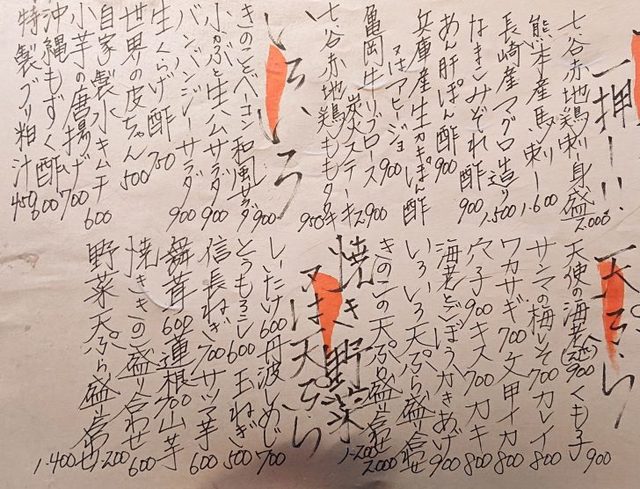 一押し!!
七谷赤地鶏刺身盛 2.000
熊本産馬刺し 1.600
長崎産マグロ造り 1.500
なまこみぞれ酢 900
あん肝ぽん酢 900
兵庫産生カキぽん酢
又はアヒージョ 900
亀岡牛リブロース
炭火ステーキ 2.900
七谷赤地鶏ももタタキ 950
いろいろ
きのことベーコン和風サラダ 900
小かぶと生ハムサラダ 900
バンバンジーサラダ 900
生くらげ酢 750
世界の皮ちゃん 500
自家製水キムチ 600
小芋の唐揚げ 700
沖縄もずく酢 600
特製ブリ粕汁 450
天ぷら
天使の海老 900 くも子 900
サンマの梅しそ 700 カレイ 800
ワカサギ 700 文甲イカ 800
穴子 900 キス 700 カキ 800
海老とごぼうかきあげ 900
いろいろ天ぷら盛り合わせ 2.000
きのこの天ぷら盛り合わせ 1.200
焼き野菜
又は天ぷら
しいたけ 600 丹波しめじ 700
とうもろこし 600 玉ねぎ 500
信長ねぎ 700 サツマ芋 600
舞茸 600 蓮根 700 山芋 600
焼ききのこ盛り合わせ 1.200
野菜天ぷら盛り合せ 1.400